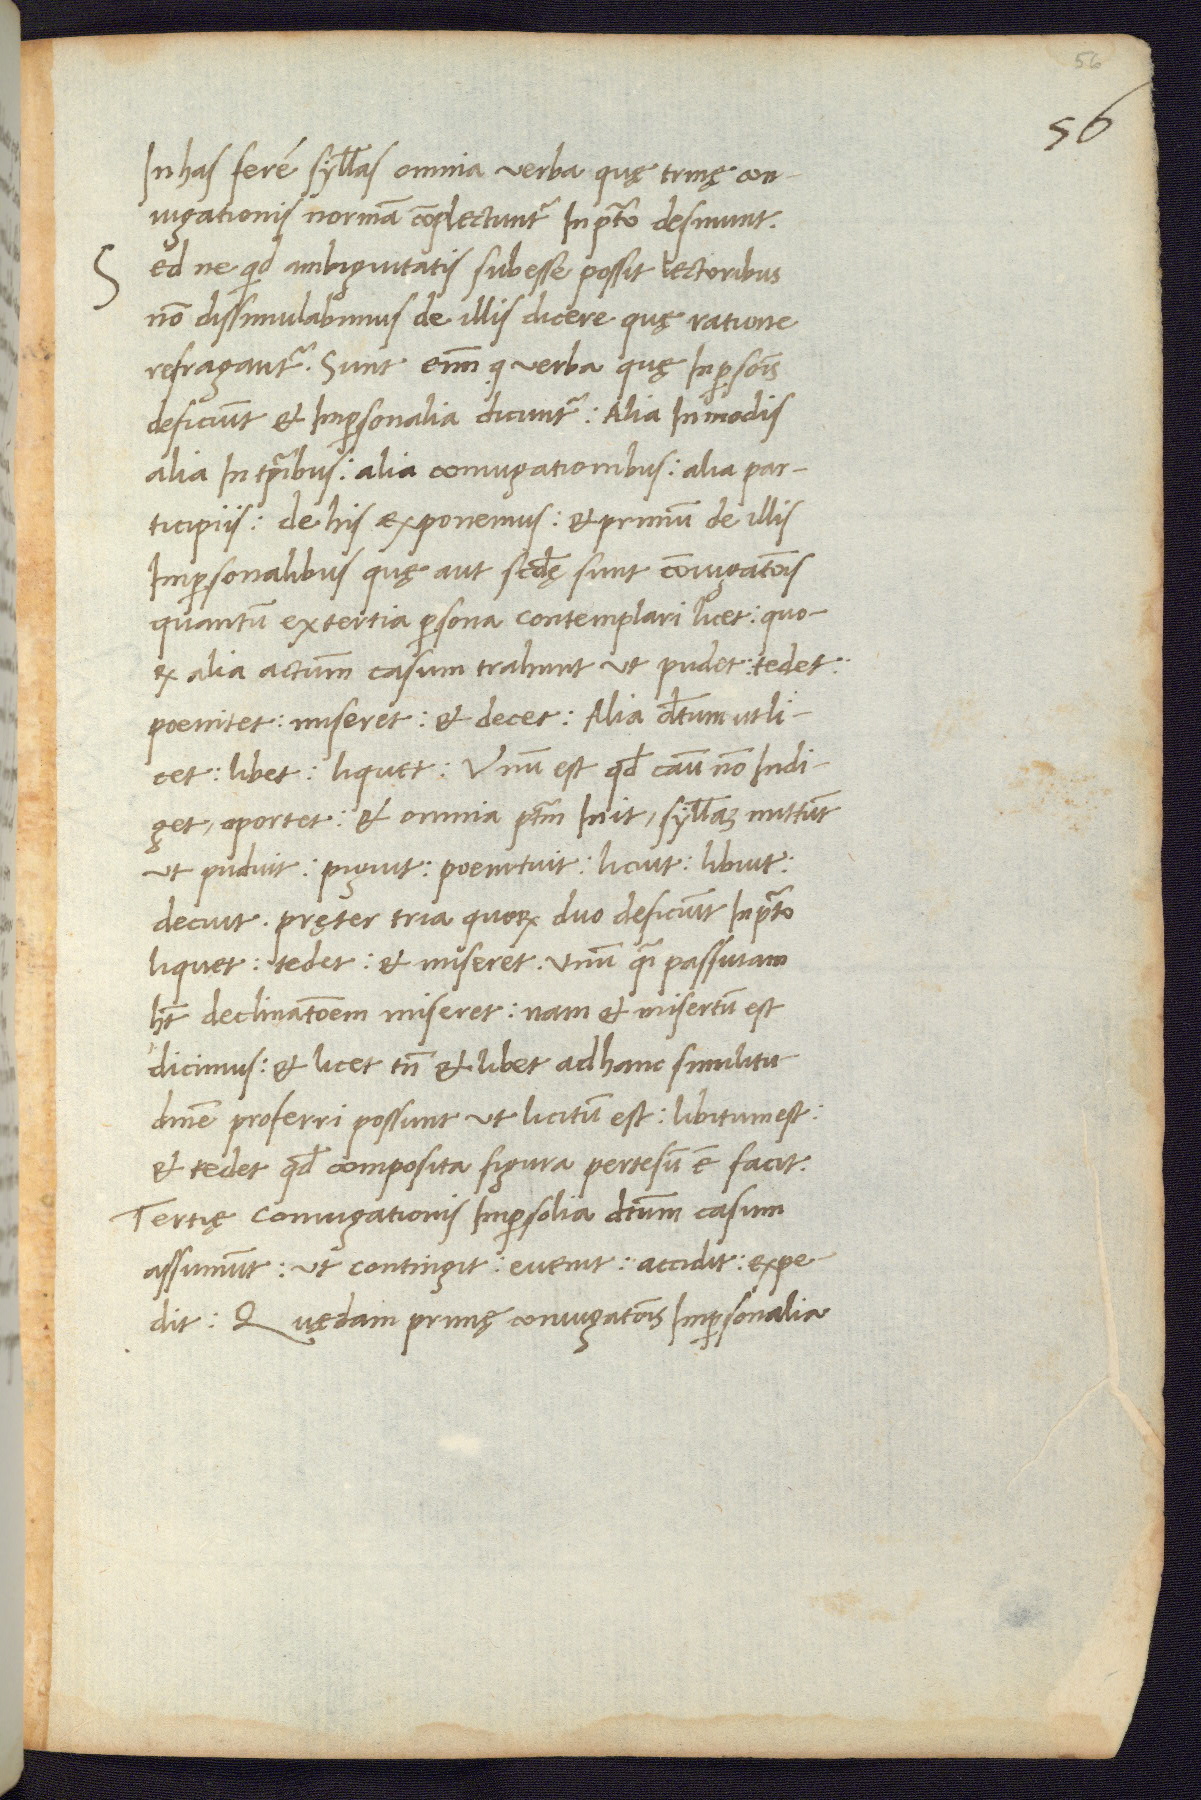 56
56
In has ferè syll̅as omnia verba quę trinę con-
iugationis normā cōplectunt᷑ In p̅to desinunt.
Sed ne qd ambiguitatis subesse possit lectoribus
nō dissimulabimus de illis dicere quę ratione
refragant᷑. Sunt eni̅m q verba quę In p̱sōis
deficiūt & Imp̱sonalia dicunt᷑: Alia In modis
alia In tp̅ibus: alia coniugationibus: alia par-
ticipiis: de his exponemus: & primū de illis
Imp̱sonalibus quę aut scd̅ę sunt cōiugatōis
quantū ex tertia p̱sona contemplari licet: quo-
ꝝ alia actūm casum trahunt ut pudet: tedet:
poenitet: miseret: & decet: Alia dt̅um ut li-
cet: libet: liquet: Vnū est qd̅ cāu̅ nō Indi-
get, oportet: & omnia pt̅m In it, syll̅aꝫ mittūt
ut puduit: piguit: poenituit: licuit: libuit:
decuit. pręter tria quoꝝ duo deficiūt In p̅to
liquet: tedet: & miseret. Vnū qi passiuam
ht̅ declinatōem miseret: nam & misertū est
dicimus: & licet tn̅ & libet ad hanc similitu
dinē proferri possunt ut licitū est: libitum est:
& tedet qd̅ composita figura pertesū ē facit.
Tertię coniugationis Imp̱solia dt̅um casum
assumūt: ut contingit: euenit: accidit: expe
dit: Quędam primę coniugatōis Imp̱sonalia